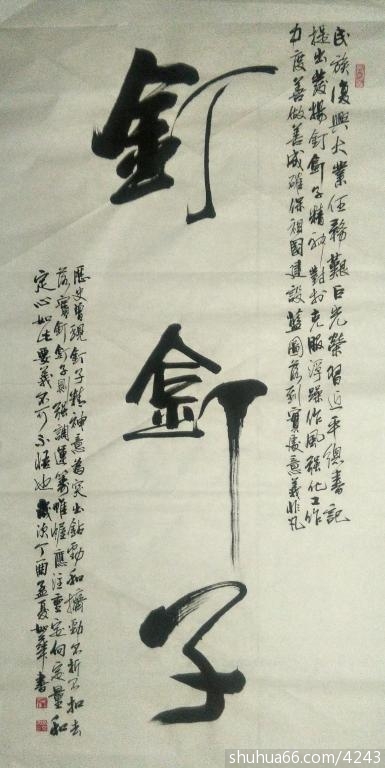 民族復興大業任務艱巨光榮習近平總書記
提出發揚釘釘子精神對於克服浮躁作風强化工作
力度善做善成確保祖國建設藍圖落到實處意義非凡
釘釘子
歷史曾現釘子精神意為突出鑽勁和擠勁不折不扣去
落實釘釘子則强調運籌帷幄應注重定向定量和
定心如此要義不可不悟也歲次丁酉孟夏如華書
shuhua66.com/4243